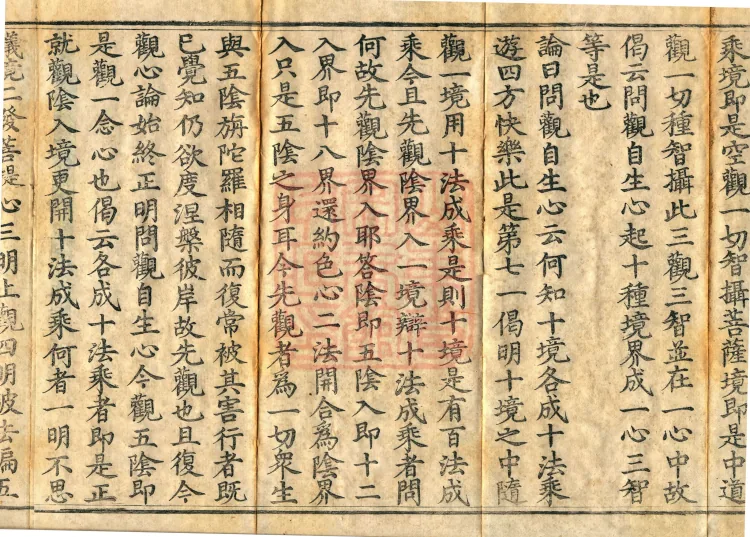 乘境即是空觀一切智攝菩薩境即是中道
觀一切種智攝此三觀三智並在一心中故
偈云問觀自生心起十種境界成一心三智
等是也
論曰問觀自生心云何知十境各成十法乘
遊四方快樂此是第七一偈明十境之中隨
觀一境用十法成乘是則十境是有百法成
乘今且先觀陰界入一境辯十法成乘者問
何故先觀陰界入耶答陰即五陰入即十二
入界即十八界還約色心二法開合為陰界
入只是五陰之身耳今先觀者為一切衆生
與五陰旃陀羅相隨而復常被其害行者既
已覺知仍欲度涅槃彼岸故先觀也且復今
觀心論始終正明問觀自生心今觀五陰即
是觀一念心也偈云各成十法乘者即是正
就觀陰入境更開十法成乘何者一明不思
議境二發菩提心三明止觀四明破法徧五